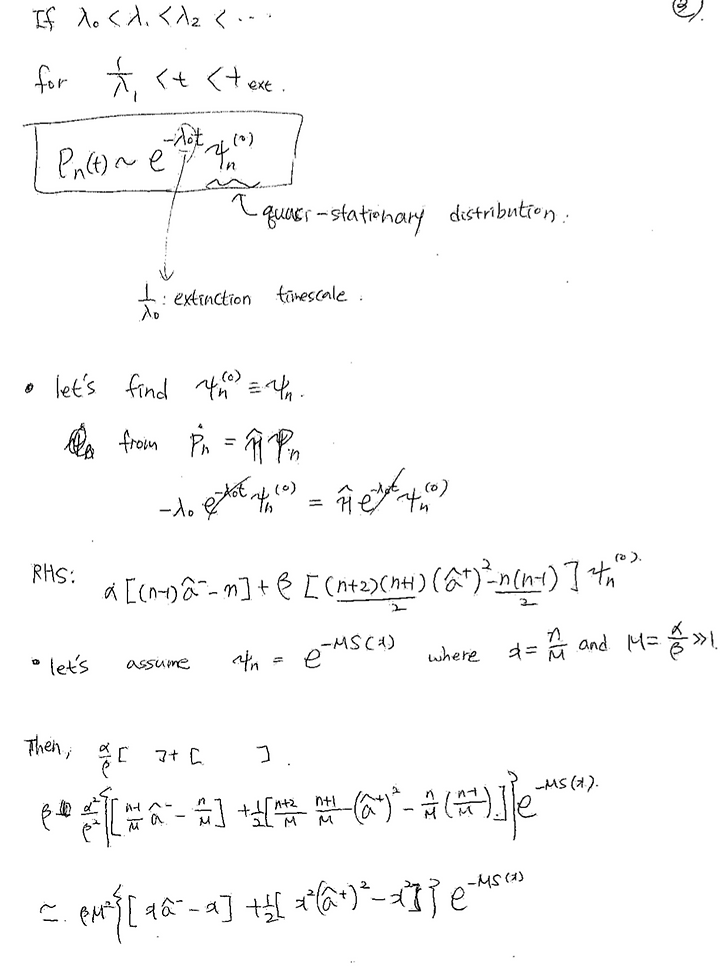 ③.
If λ₀ < λ₁ < λ₂ < ⋯
for 1/λ₁ < t < t_ext.
Pₙ(t) ~ e^{-λ₀t} ψₙ^{(0)}
quasi-stationary distribution.
1/λ₀ : extinction timescale.
• let's find ψₙ^{(0)} ≡ ψₙ.
from Ṗₙ = Ĥ Pₙ
-λ₀ e^{-λ₀t} ψₙ^{(0)} = Ĥ e^{-λ₀t} ψₙ^{(0)}
RHS: α[(n-1)â⁻ - n] + β[(n+2)(n+1)/2 (â⁺)² - n(n-1)/2] ψₙ^{(0)}.
• let's assume ψₙ = e^{-MS(x)} where x = n/M and M = α/β ≫ 1.
Then, α/β [ ] + [ ].
β α²/β² {[(n-1)/M â⁻ - n/M] + 1/2[(n+2)/M (n+1)/M (â⁺)² - n/M ((n-1)/M)]} e^{-MS(x)}.
≃. βM² {[xâ⁻ - x] + 1/2[x²(â⁺)² - x²]} e^{-MS(x)}